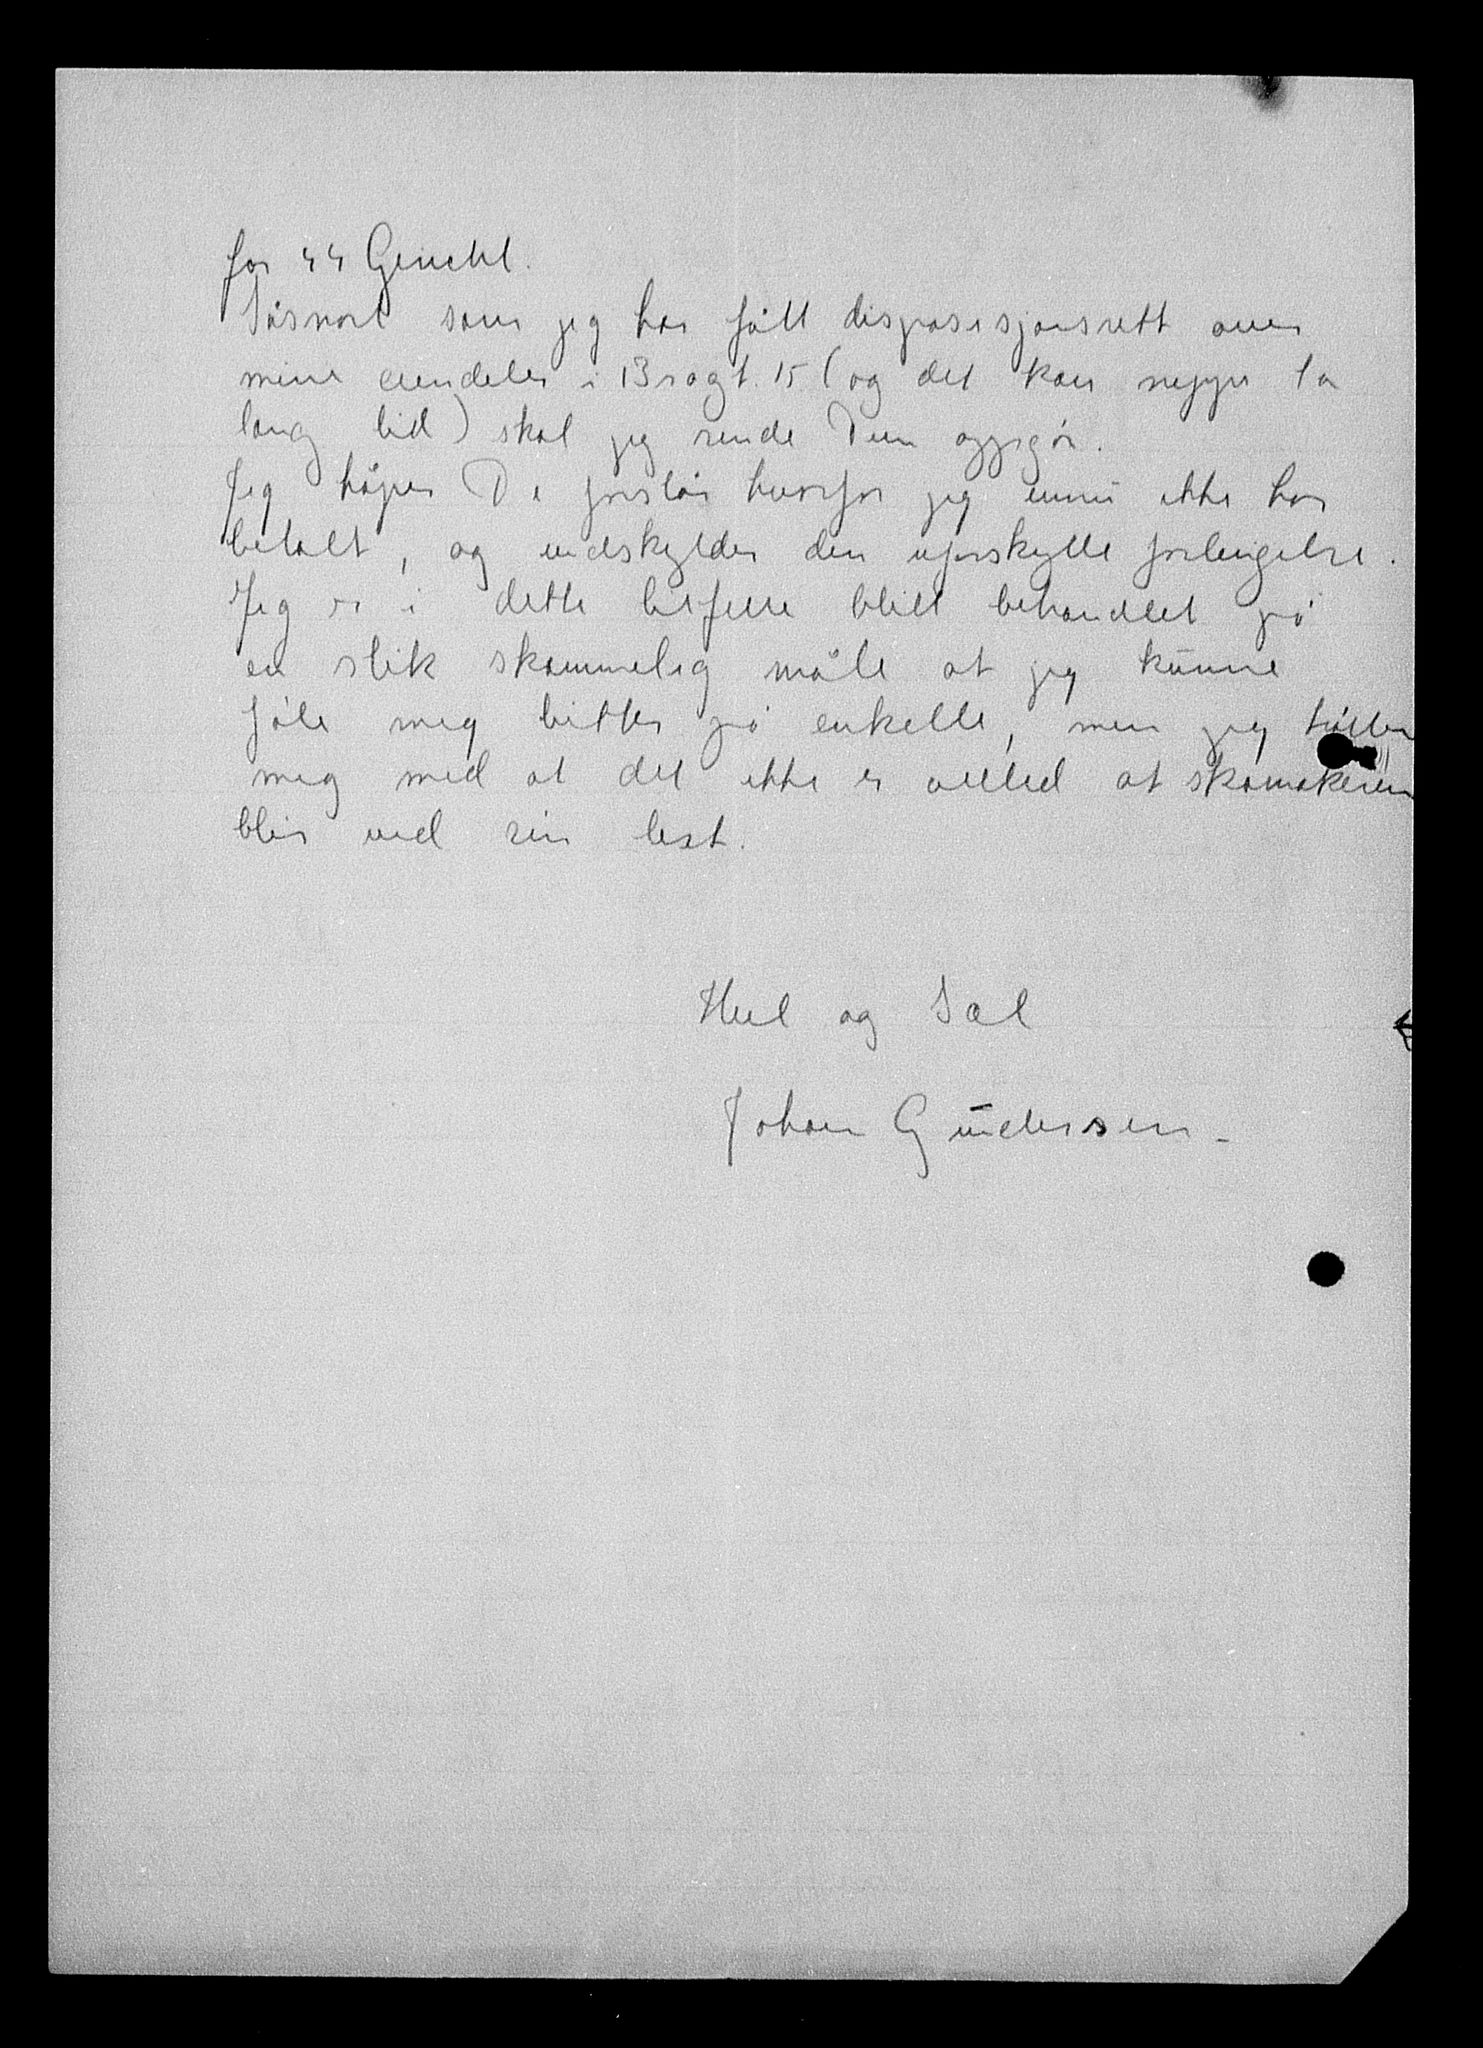 for SS Gericht.
Såsnart som jeg har fått disposisjonsrett over
mine eiendeler i Bragt. 15 (og det kan neppe ta
lang tid) skal jeg sende Dem oppgjör.
Jeg håper De forstår hvorfor jeg ennu ikke har
betalt, og undskylder den uforskylte forlengelse.
Jeg er i dette tilfelle blitt behandlet på
en slik skammelig måte at jeg kunne
föle meg bitter på enkelte, men jeg tröster
meg med at det ikke er alltid at skomakeren
blir ved sin lest.
Heil og Sæl
Johan Gundersen.